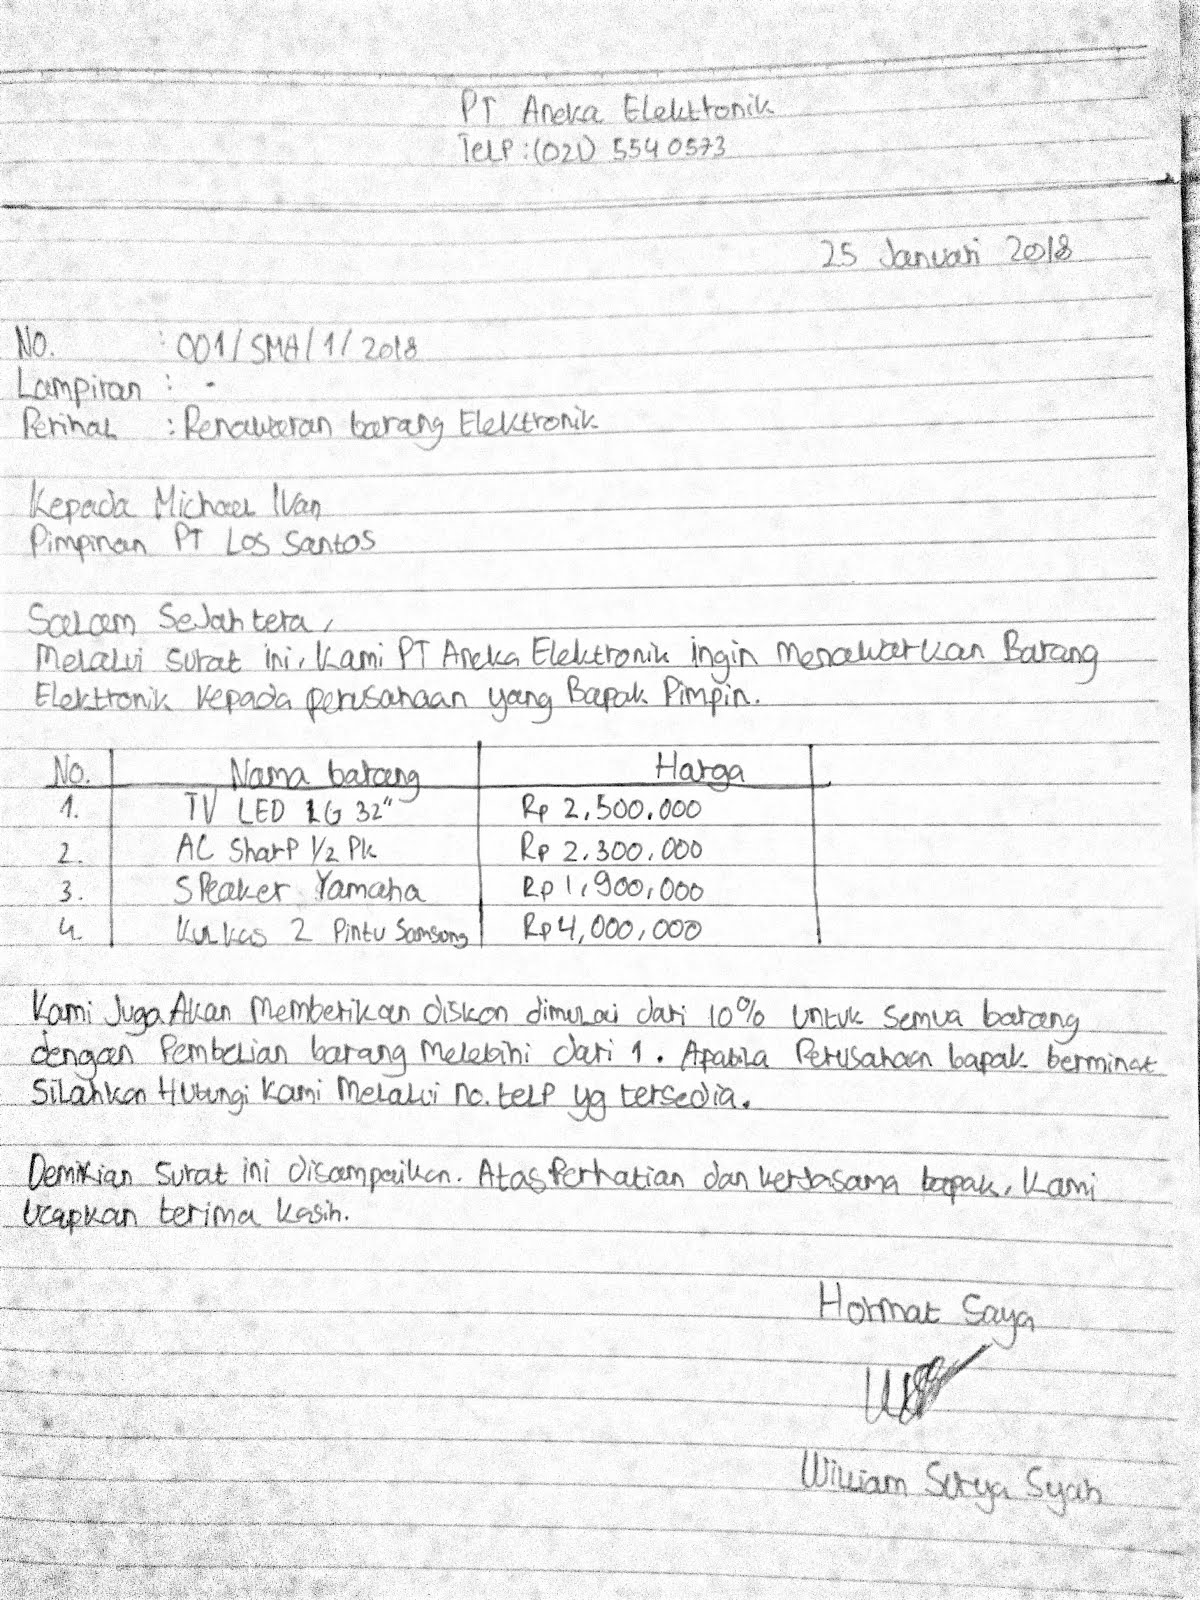 PT Aneka Elektronik
TelP : (021) 554 0573
25 Januari 2018
No. : 001/SMA/1/2018
Lampiran : -
Perihal : Penawaran barang Elektronik
Kepada Michael Ivan
Pimpinan PT Los Santos
Salam Sejahtera,
Melalui surat ini, Kami PT Aneka Elektronik ingin Menawarkan Barang
Elektronik kepada perusahaan yang Bapak Pimpin.
No. Nama barang Harga
1. TV LED LG 32" Rp 2,500.000
2. AC Sharp 1/2 Pk Rp 2.300.000
3. Speaker Yamaha Rp 1,900,000
4. Kulkas 2 Pintu Samsung Rp 4,000,000
Kami Juga Akan Memberikan diskon dimulai dari 10% Untuk Semua barang
dengan Pembelian barang Melebihi dari 1. Apabila Perusahaan bapak berminat
Silahkan Hubungi Kami Melalui no. telp yg tersedia.
Demikian Surat ini disampaikan. Atas Perhatian dan kerjasama bapak, Kami
Ucapkan terima kasih.
Hormat Saya
William Surya Syah